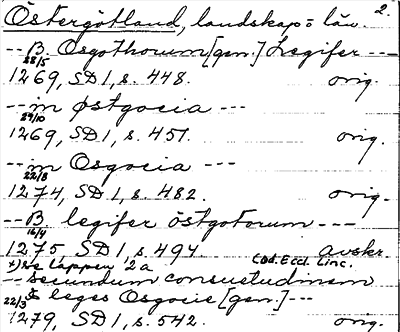 Östergötland, landskap = län. 2.
-- B. Osgothorum [gen.] Legifer ---
28/5
1269, SD 1, s. 448. orig.
-- in østgocia ---
29/10
1269, SD 1, s. 457. orig.
-- in Osgocia ---
22/8
1274, SD 1, s. 482. orig.
-- B. legifer östgotorum ---
16/4
1275, SD 1, s. 494. avskr.
x) Se lappen 2a Cod. Eccl. Linc.
-- secundum consuetudinem
& leges Osgocie [gen.] ---
22/3
1279, SD 1, s. 542. orig.